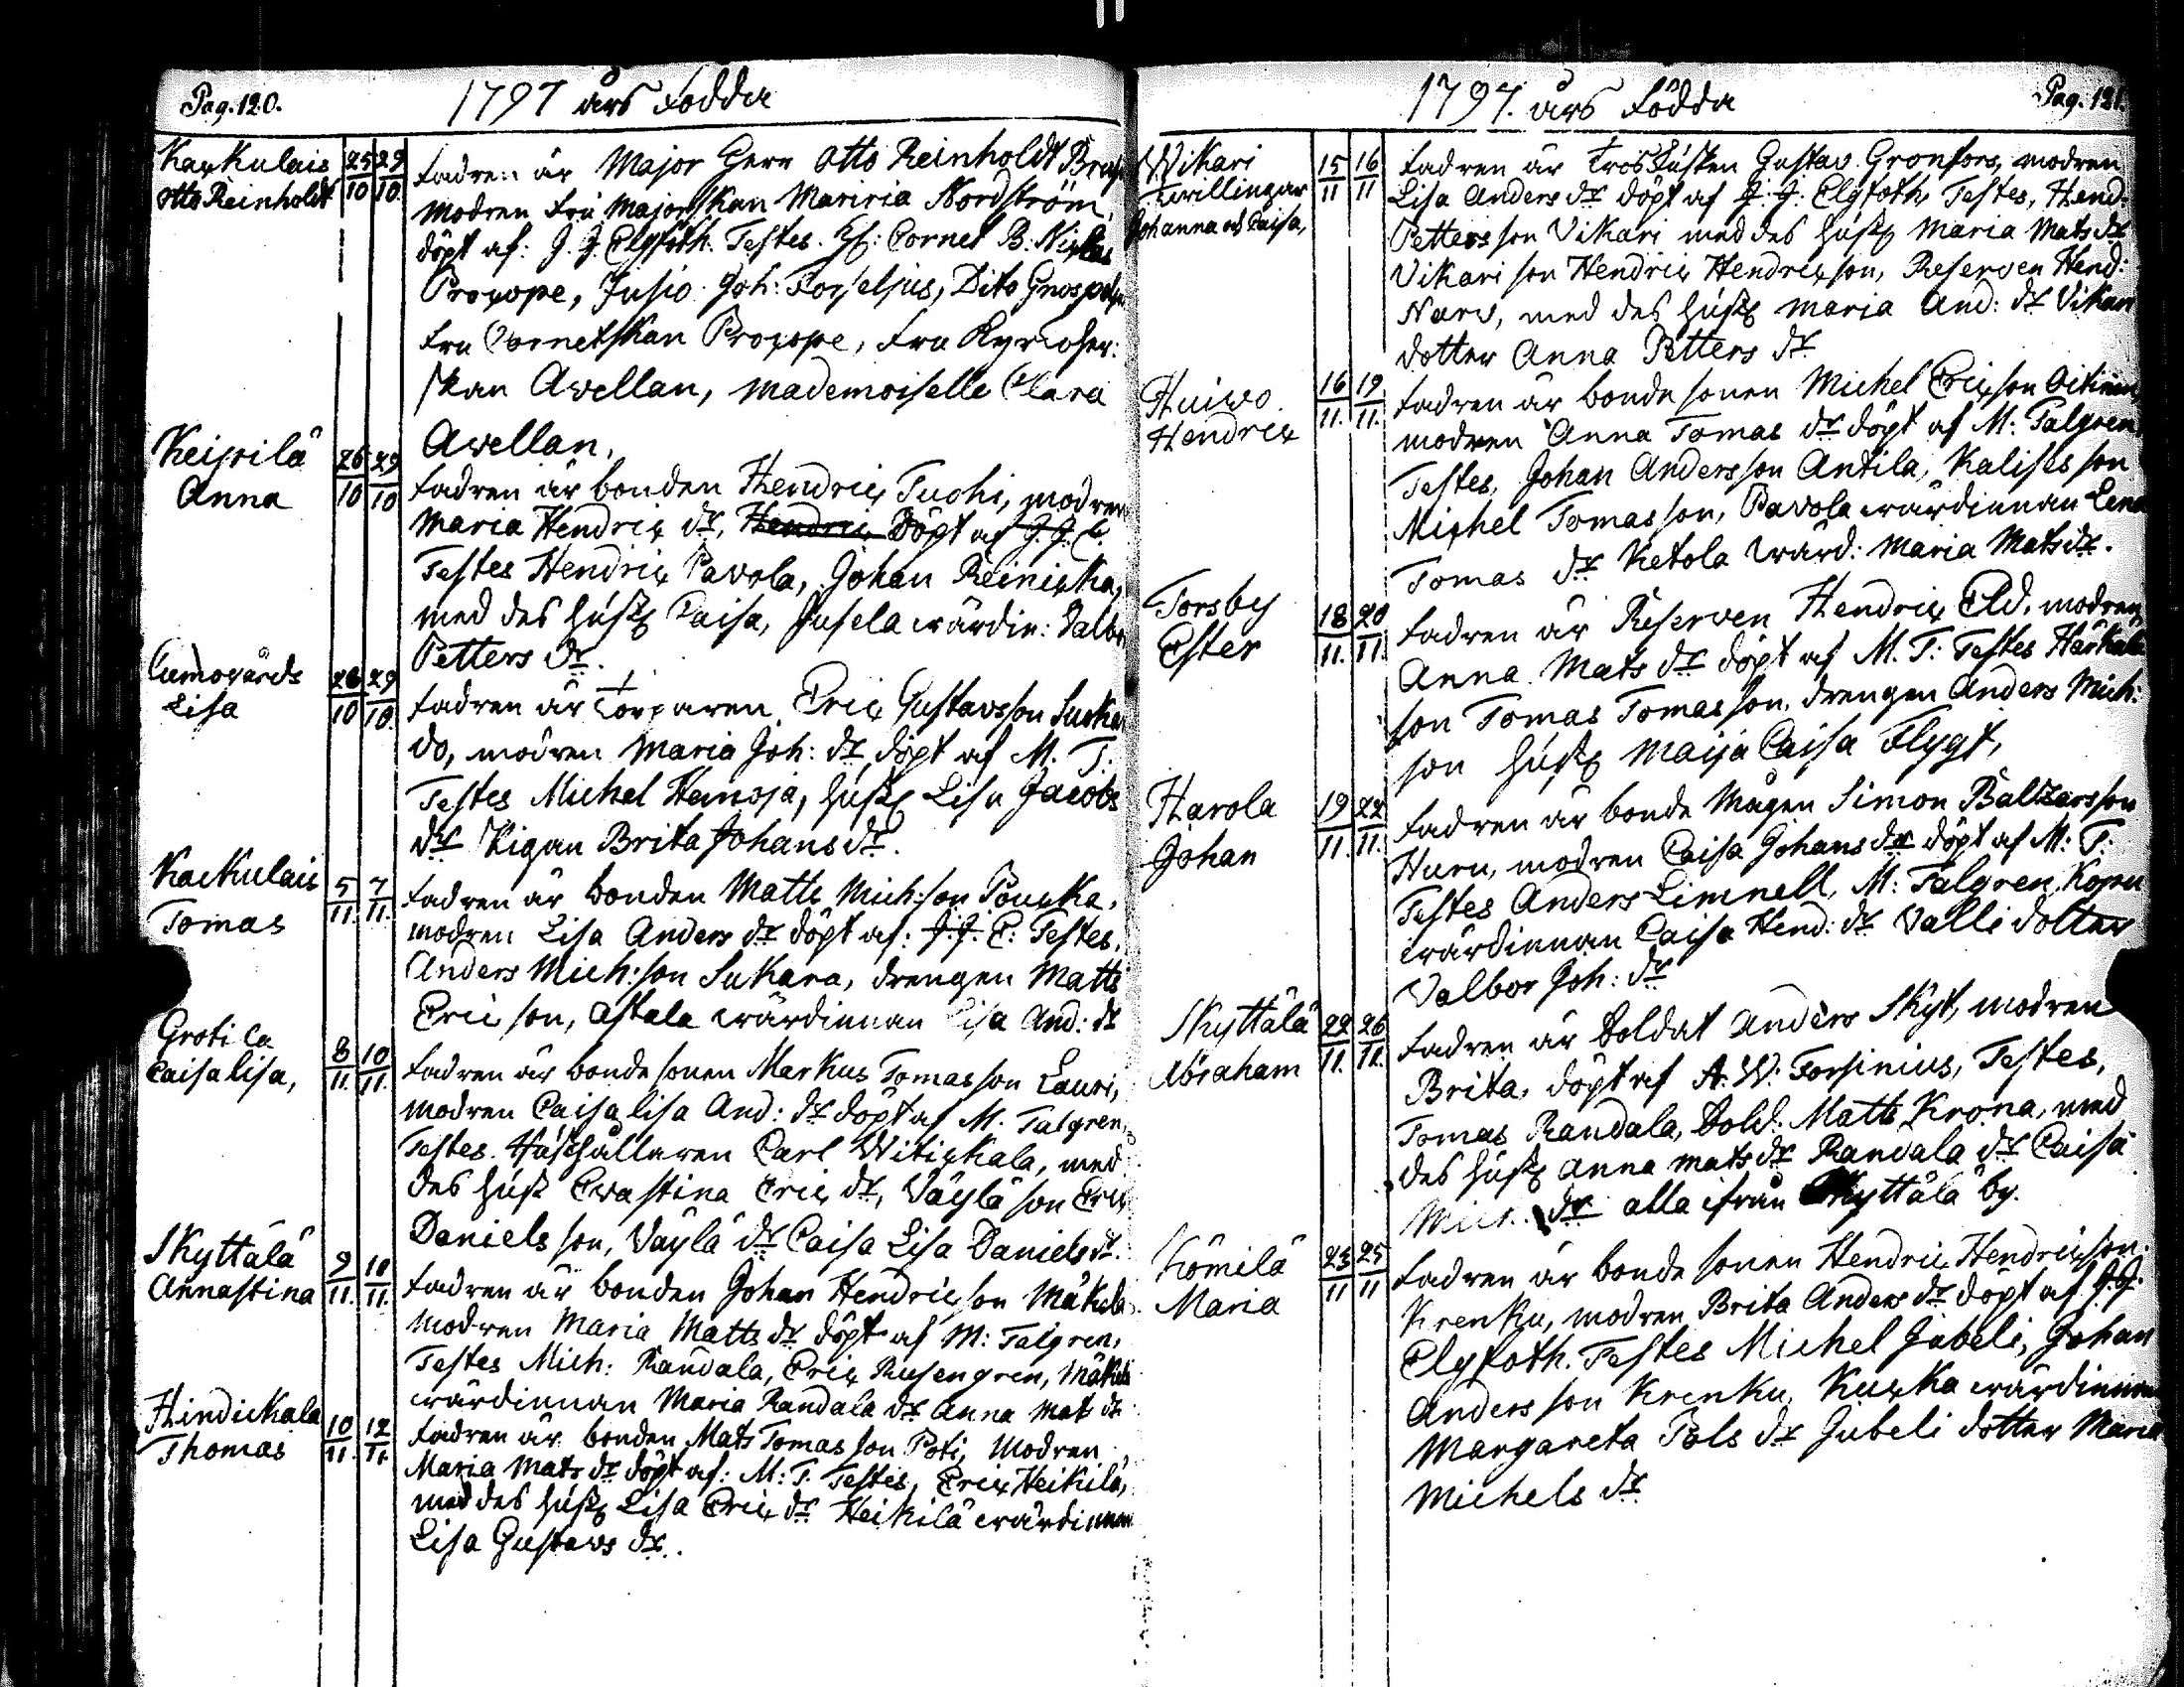 Pag. 120.
1797 års Födda
Karkulais 25/10 29/10. Fadren är Major Herr Otto Reinholdt
Otto Reinholdt
modren Fru Majorskan Nordström,
döpt af: J. J. Elgfoth. Testes. Cornet B.
Procope, Joh: Forseljus, Dito
Fru Cornetskan Procope, Fru
skan Avellan, Mademoiselle Clara
Avellan,
Keipilä 26/10 29/10 Fadren är bonden Hendric Tuohi, modren
Anna
Maria Hendrix dr, Hendric Döpt af J. J. E.
Testes Hendric Pavola, Johan Reinicka,
med des hust Caisa, Jusela wärdin: Valbor
Petters dr.
28/10 29/10. Fadren är Torparen Eric Gustavsson
Lisa
do, modren Maria Joh: dr, döpt af M. T.
Testes Michel Hemoja, hust Lisa Jacobs
dr Pigan Brita Johans dr.
Karkulais 5/11. 7/11. Fadren är bonden Matts Mich:son Poucka,
Tomas
modren Lisa Anders dr döpt af: J. J. E: Testes,
Anders Mich:son Sukara, drengen Matts
Ericson, Astala wärdinnan Lisa And: dr
Grotila 8/11. 10/11. Fadren är bonde sonen Markus Tomasson Lauri,
Caisa Lisa,
modren Caisa Lisa And: dr döpt af M. Talgren,
Testes. Hushållaren Carl Witickala, med
des hust Evastina Eric dr, Väylä son Eric
Danielsson, Väylä dr Caisa Lisa Daniels dr.
Skyttälä 9/11. 10/11. Fadren är bonden Johan Hendricson Mäkelä
Annastina
modren Maria Matts dr döpt af M: Talgren,
Testes Mich: Randala, Eric Rusengren, Mäkelä
wärdinnan Maria Randala dr Anna Mats dr
Hindickala 10/11. 12/11. Fadren är bonden Mats Tomasson Poti, Modren
Thomas
Maria Mats dr döpt af: M: T. Testes, Eric Heikilä,
med des hust Lisa Eric dr Heikilä wärdinnan
Lisa Gustavs dr.
1797. års Födda
Pag. 121.
Vikari 15/11 16/11 Fadren är Trosskusken Gustav Gronfors, modren
Twillingar
Johanna och Caisa,
Lisa Anders dr döpt af J. J: Elgfoth, Testes, Hend:
Pettersson Vikari med des hust Maria Mats dr
Vikari son Hendric Hendricson, Reserven Hend:
Narv, med des hust Maria And: dr Vikari
dotter Anna Petters dr
Huivo 16/11. 19/11. Fadren är bonde sonen Michel Ericson
Hendric
modren Anna Tomas dr döpt af M: Talgren
Testes, Johan Andersson Antila, Kalises son
Michel Tomasson, Pavola wärdinnan Lena
Tomas dr Ketola wärd: Maria Mats dr.
Torsby 18/11. 20/11. Fadren är Reserven Hendric Eld, modren
Ester
Anna Mats dr döpt af M. T: Testes Härkälä
son Tomas Tomasson, drengen Anders Mich:
son hust Maija Caisa Flygt,
Harola 19/11. 22/11. Fadren är bonde Mågen Simon Baltzarsson
Johan
Huru, modren Caisa Johans dr döpt af M: T:
Testes Anders Limnell, M: Talgren, Kopu
wärdinnan Caisa Hend: dr Valli dotter
Valbor Joh: dr
Skyttälä 22/11. 26/11. Fadren är Soldat Anders Skyt, modren
Abraham
Brita, döpt af A. W: Forsinius, Testes,
Tomas Randala, Sold: Matts Krona, med
des hust Anna Mats dr Randala dr Caisa
Mich: dr alla ifrån Skyttälä by.
Kömilä 23/11 25/11 Fadren är bonde sonen Hendric Hendricson
Maria
Krenku, modren Brita Anders dr döpt af J. J.
Elgfoth. Testes Michel Jubeli, Johan
Andersson Krenku, Kucka wärdinnan
Margareta Pols dr Jubeli dotter Maria
Michels dr